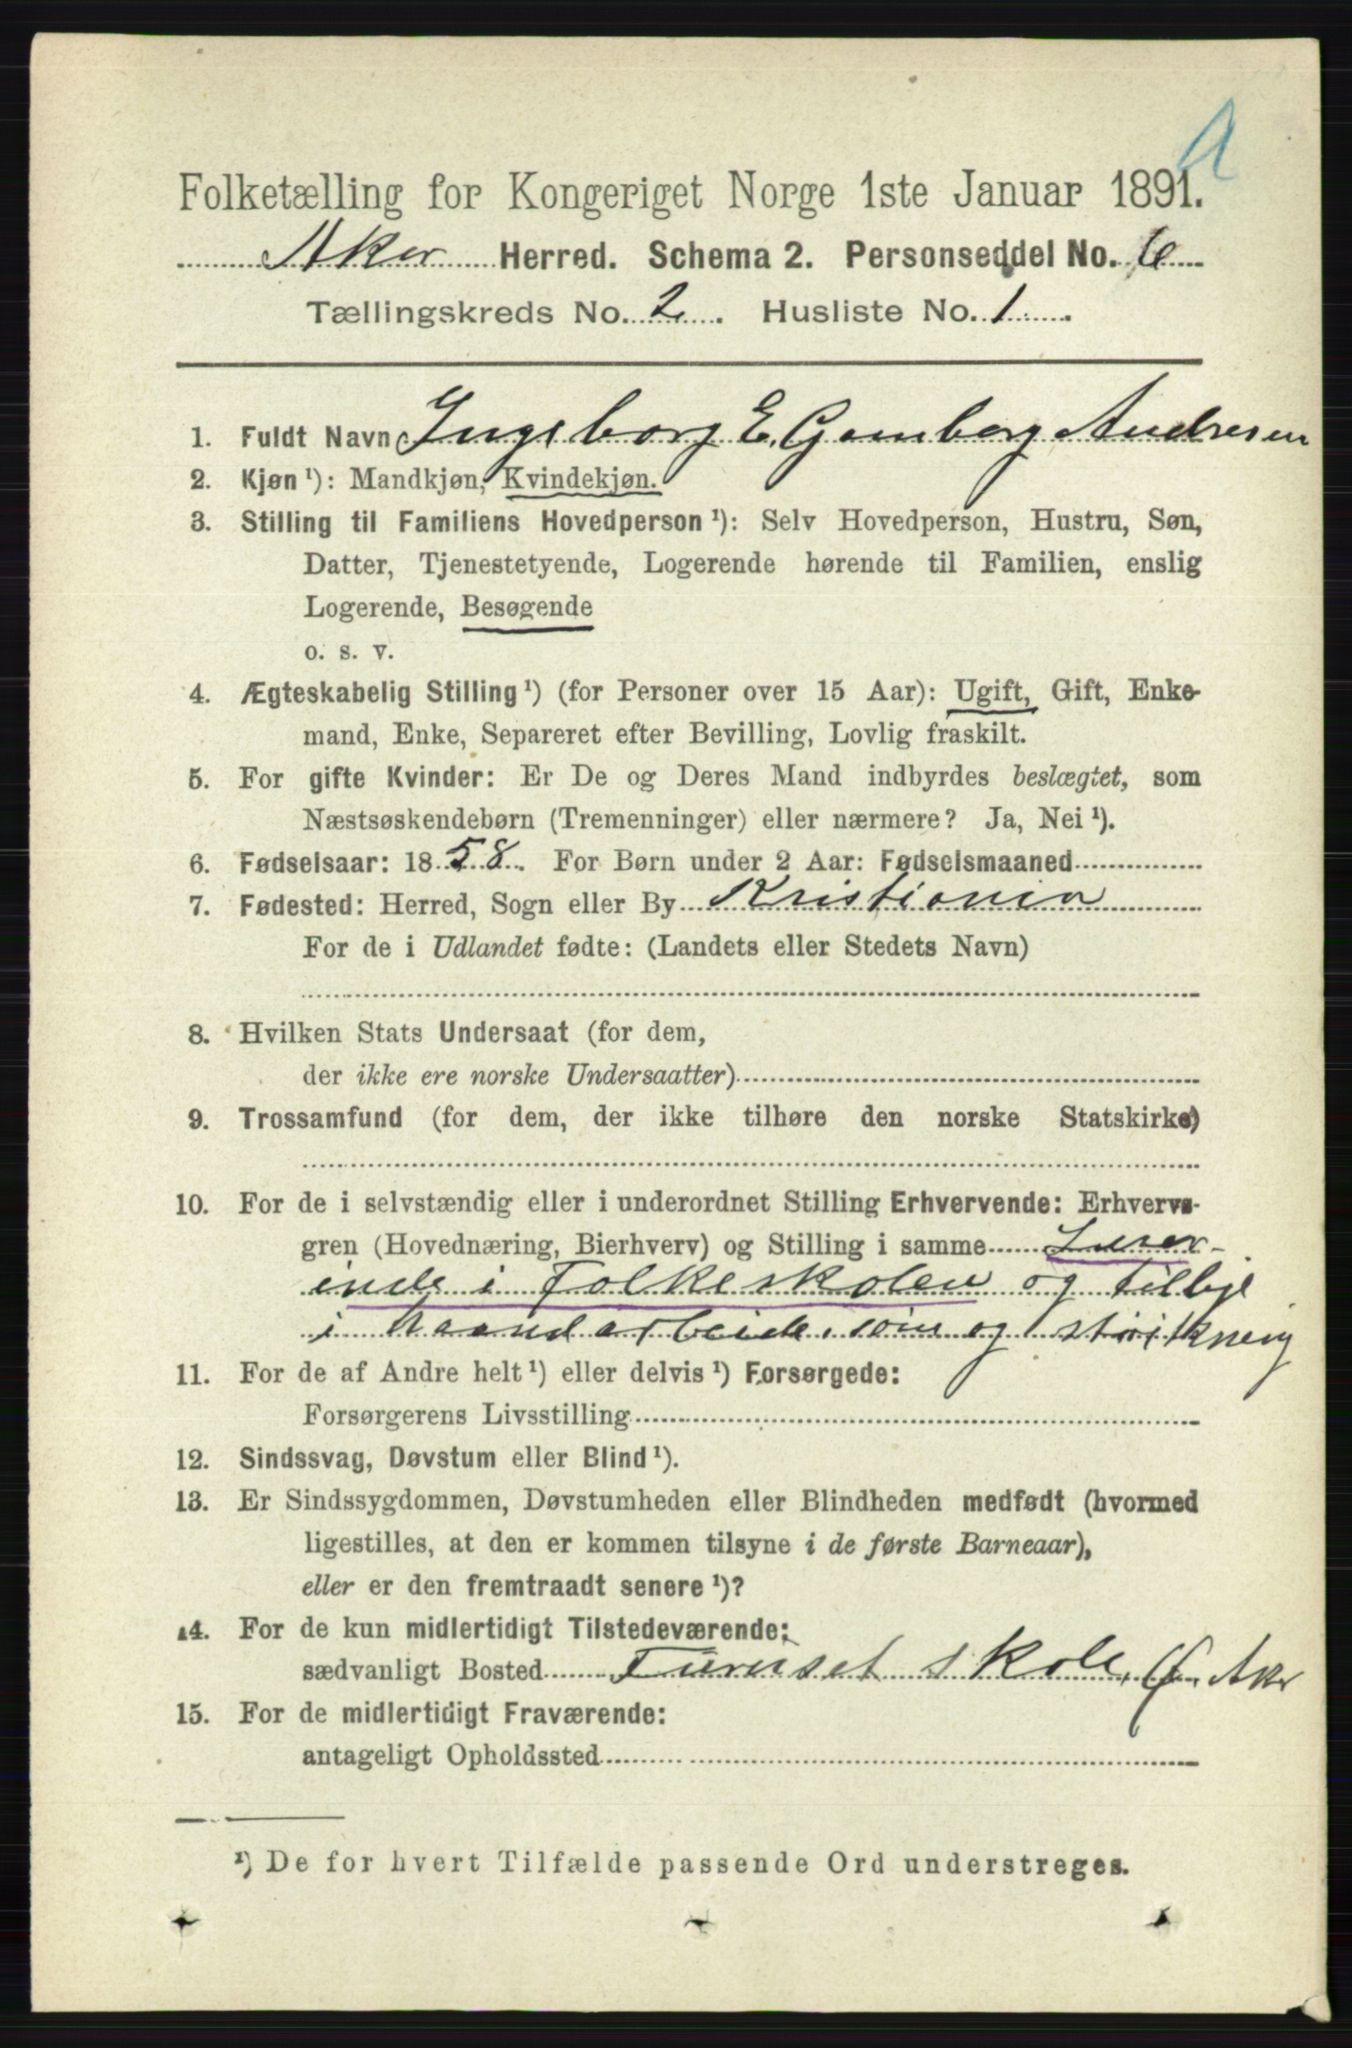 A
Folketælling for Kongeriget Norge 1ste Januar 1891.
Aker Herred. Schema 2. Personseddel No. 6
Tællingskreds No. 2. Husliste No. 1.
1. Fuldt Navn Ingeborg E. Gamborg Andresen
2. Kjøn ¹): Mandkjøn, Kvindekjøn.
3. Stilling til Familiens Hovedperson ¹): Selv Hovedperson, Hustru, Søn,
Datter, Tjenestetyende, Logerende hørende til Familien, enslig
Logerende, Besøgende
o. s. v.
4. Ægteskabelig Stilling ¹) (for Personer over 15 Aar): Ugift, Gift, Enke-
mand, Enke, Separeret efter Bevilling, Lovlig fraskilt.
5. For gifte Kvinder: Er De og Deres Mand indbyrdes beslægtet, som
Næstsøskendebørn (Tremenninger) eller nærmere? Ja, Nei ¹).
6. Fødselsaar: 1858. For Børn under 2 Aar: Fødselsmaaned
7. Fødested: Herred, Sogn eller By Kristiania
For de i Udlandet fødte: (Landets eller Stedets Navn)
8. Hvilken Stats Undersaat (for dem,
der ikke ere norske Undersaatter)
9. Trossamfund (for dem, der ikke tilhøre den norske Statskirke)
10. For de i selvstændig eller i underordnet Stilling Erhvervende: Erhvervs-
gren (Hovednæring, Bierhverv) og Stilling i samme Lærer-
inde i Folkeskolen og tillige
i haandarbeide, søm og strikning
11. For de af Andre helt ¹) eller delvis ¹) Forsørgede:
Forsørgerens Livsstilling
12. Sindssvag, Døvstum eller Blind ¹).
13. Er Sindssygdommen, Døvstumheden eller Blindheden medfødt (hvormed
ligestilles, at den er kommen tilsyne i de første Barneaar),
eller er den fremtraadt senere ¹)?
14. For de kun midlertidigt Tilstedeværende:
sædvanligt Bosted Furuset skole, Ø. Aker
15. For de midlertidigt Fraværende:
antageligt Opholdssted
¹) De for hvert Tilfælde passende Ord understreges.